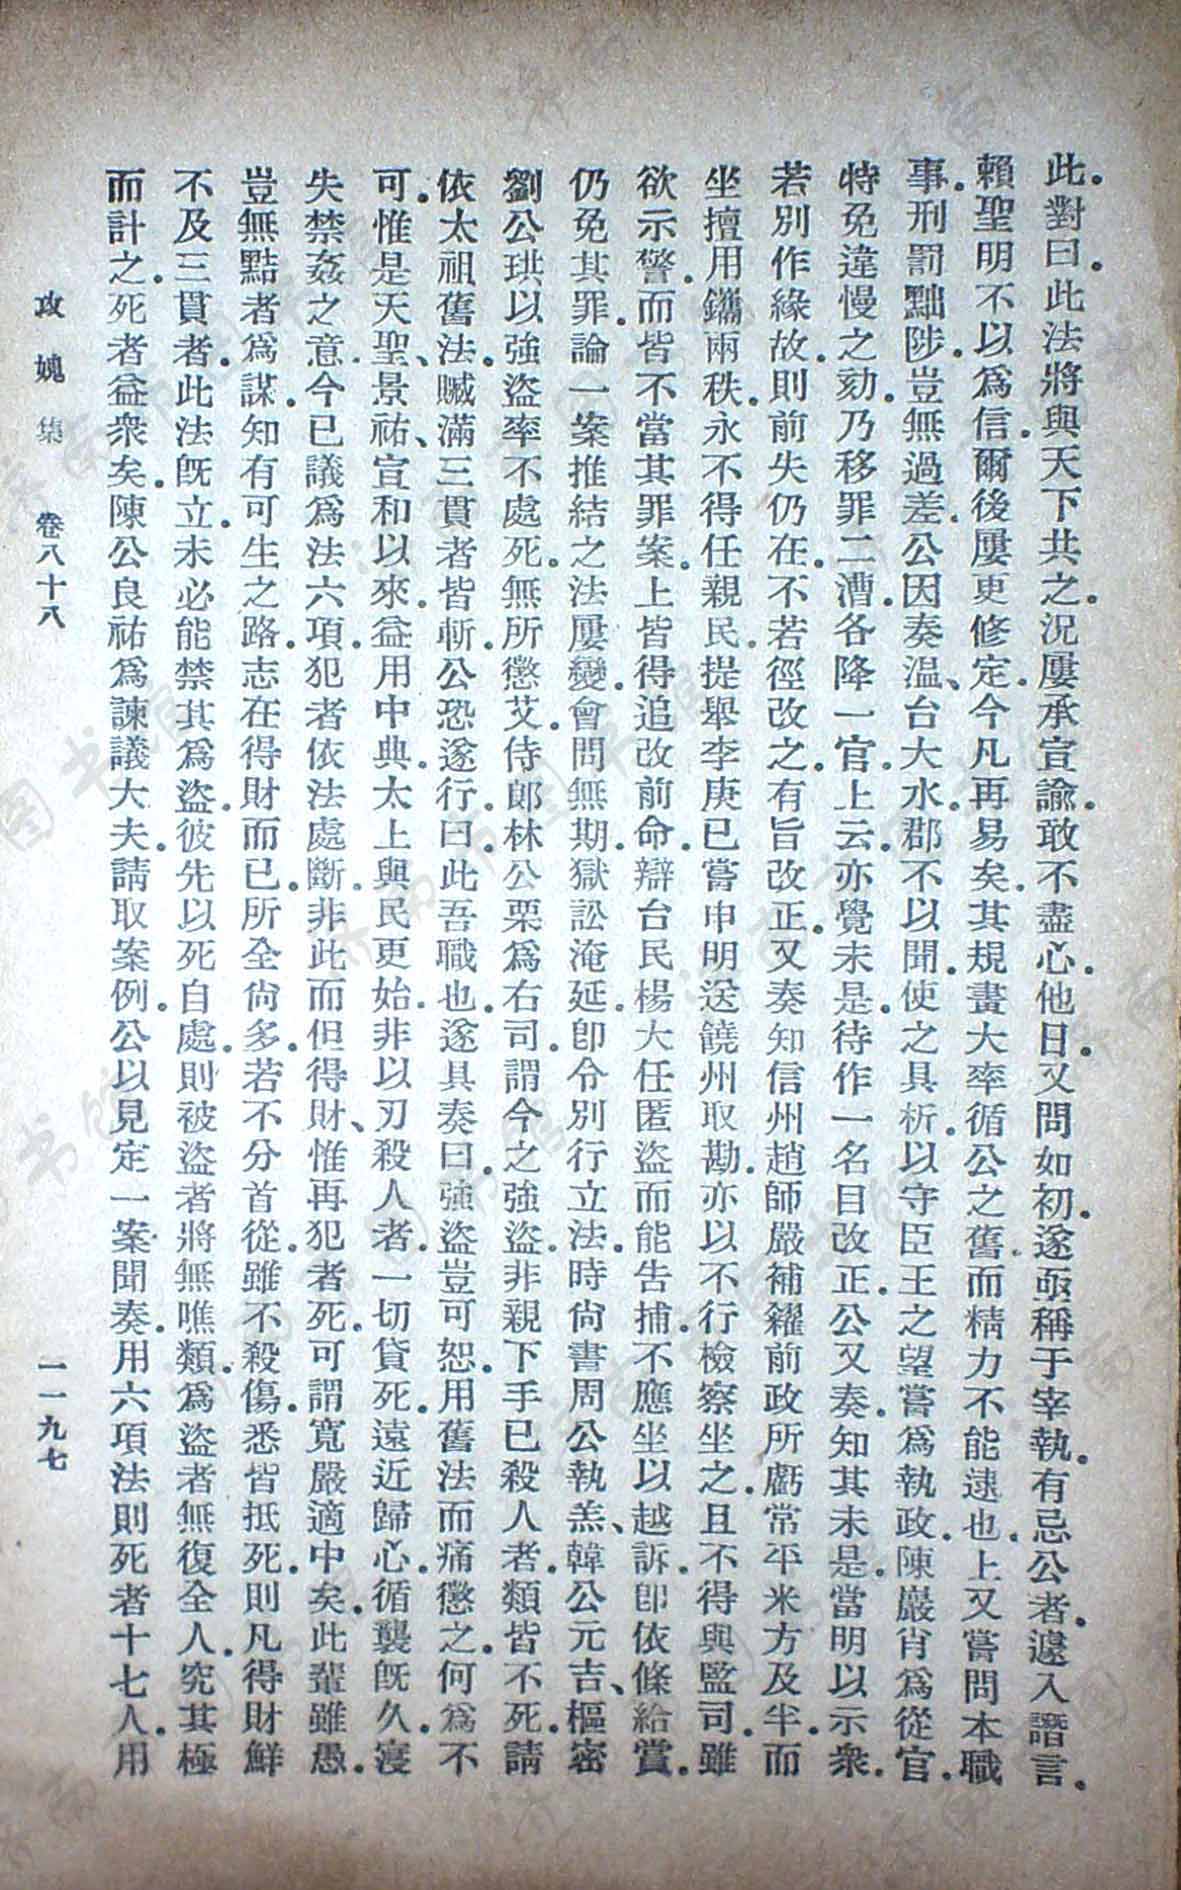 此。對曰。此法將與天下共之。況屢承宣諭。敢不盡心。他日。又問如初。遂亟稱于宰執。有忌公者。遽入譖言。
賴聖明不以爲信。爾後屢更修定。今凡再易矣。其規畫大率循公之舊。而精力不能逮也。上又嘗問本職
事。刑罰黜陟。豈無過差。公因奏溫、台大水。郡不以聞。使之具析。以守臣王之望嘗爲執政。陳巖肖爲從官。
特免違慢之劾。乃移罪二漕。各降一官。上云。亦覺未是。待作一名目改正。公又奏。知其未是。當明以示衆。
若別作緣故。則前失仍在。不若徑改之。有旨改正。又奏知信州趙師嚴補糴前政所虧常平米方及半。而
坐擅用鐫兩秩。永不得任親民。提舉李庚已嘗申明送饒州取勘。亦以不行檢察坐之。且不得與監司。雖
欲示警。而皆不當其罪案。上皆得追改前命。辯台民楊大任匿盜而能告捕。不應坐以越訴。卽依條給賞。
仍免其罪。論一案推結之法屢變。會問無期。獄訟淹延。卽令別行立法。時尙書周公執羔、韓公元吉、樞密
劉公珙以強盜率不處死。無所懲艾。侍郎林公栗爲右司。謂今之強盜。非親下手已殺人者。類皆不死。請
依太祖舊法。贓滿三貫者皆斬。公恐遂行。曰。此吾職也。遂具奏曰。強盜豈可恕。用舊法而痛懲之。何爲不
可。惟是天聖、景祐、宣和以來。益用中典。太上與民更始。非以刃殺人者。一切貸死。遠近歸心。循襲旣久。寖
失禁姦之意。今已議爲法六項。犯者依法處斷。非此而但得財、惟再犯者死。可謂寬嚴適中矣。此輩雖愚。
豈無黠者爲謀。知有可生之路。志在得財而已。所全尙多。若不分首從。雖不殺傷。悉皆抵死。則凡得財鮮
不及三貫者。此法旣立。未必能禁其爲盜。彼先以死自處。則被盜者將無噍類。爲盜者無復全人。究其極
而計之。死者益衆矣。陳公良祐爲諫議大夫。請取案例。公以見定一案聞奏。用六項法則死者十七人。用
攻媿集　卷八十八　一一九七